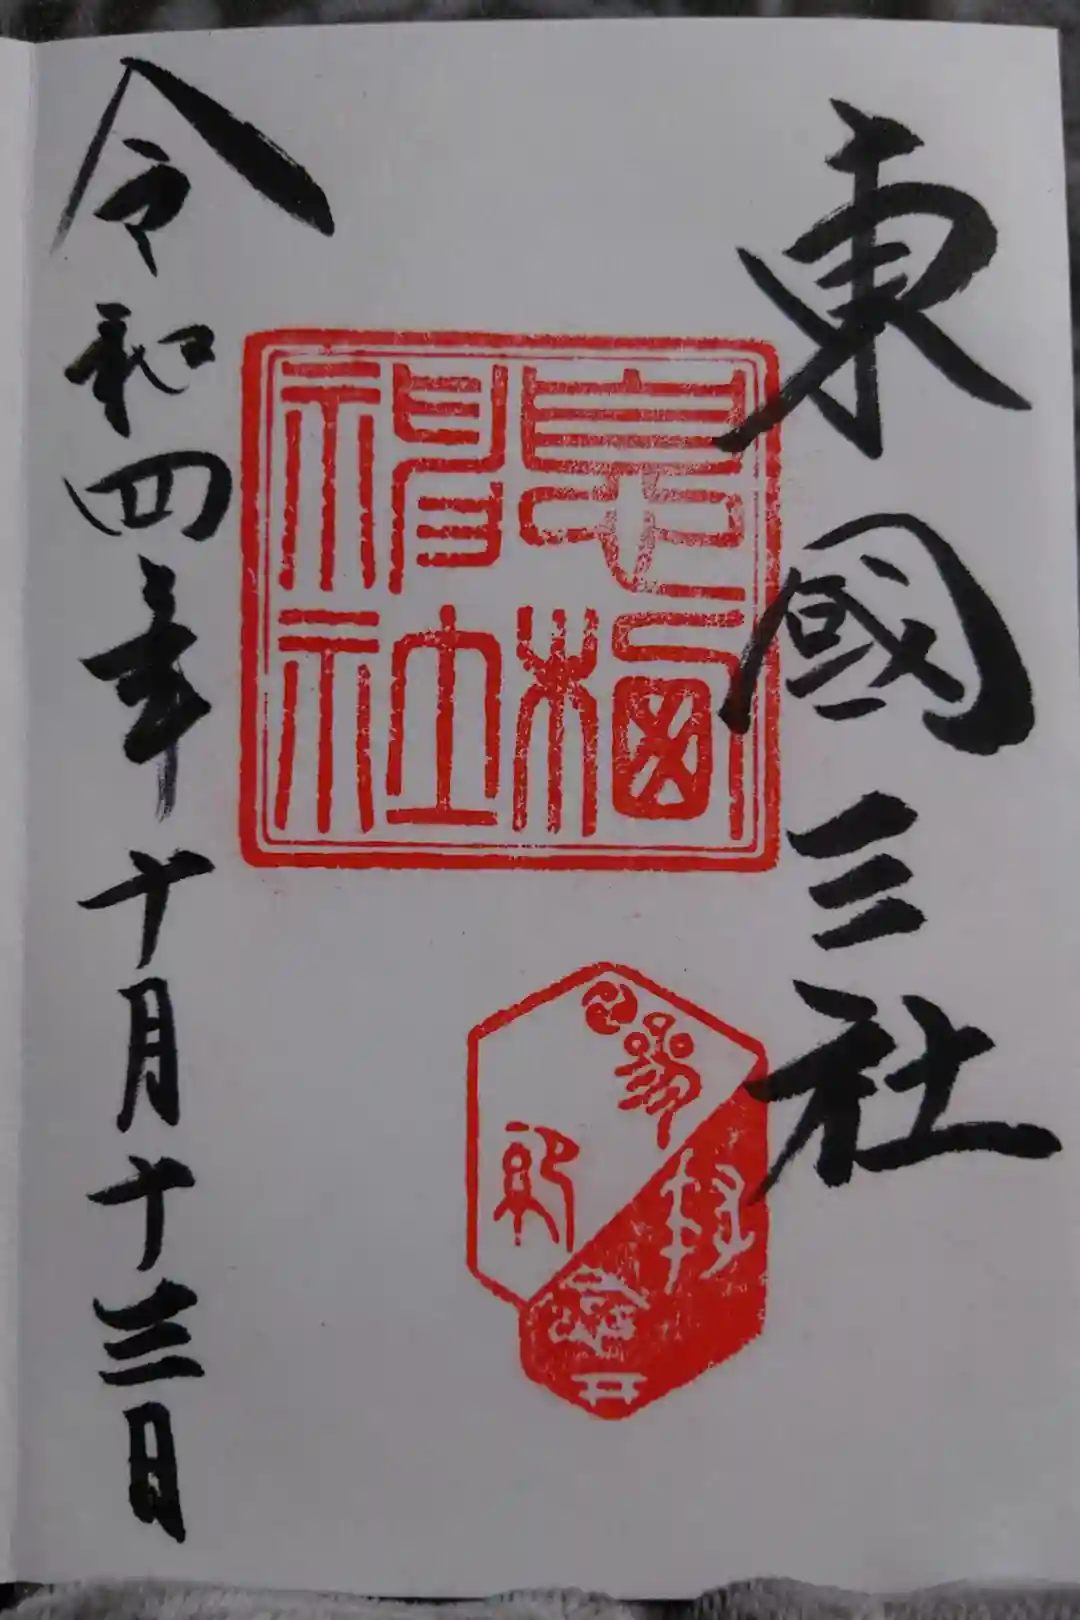 東國三社
息栖神社
令和四年十月十三日